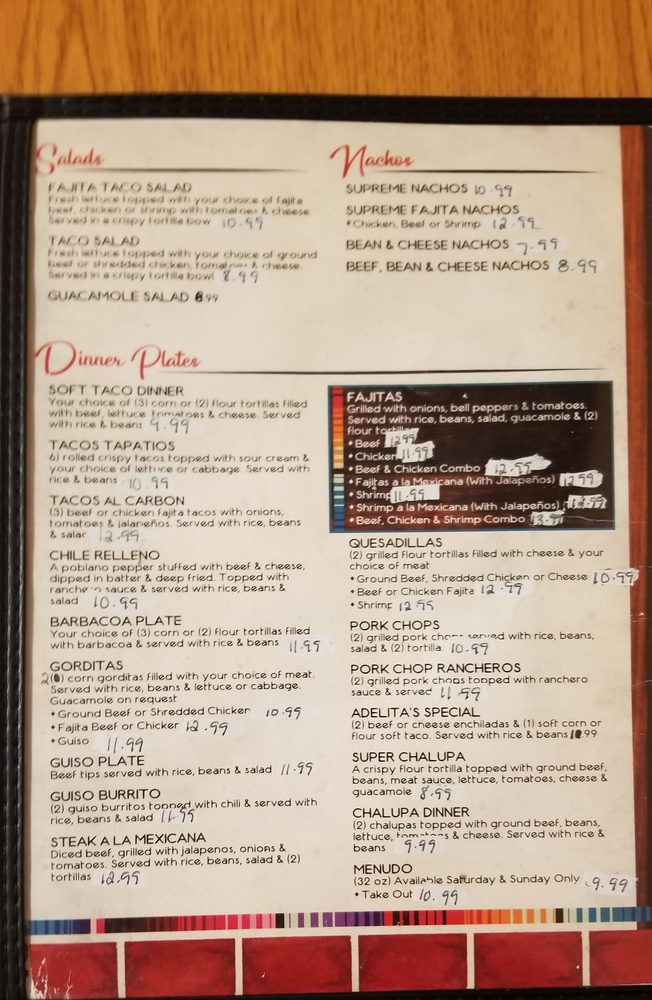 Salads
FAJITA TACO SALAD
Fresh lettuce topped with your choice of fajita
beef, chicken or shrimp with tomatoes & cheese
Served in a crispy tortilla bowl 10.99
TACO SALAD
Fresh lettuce topped with your choice of ground
beef or shredded chicken, tomatoes & cheese.
Served in a crispy tortilla bowl 8.99
GUACAMOLE SALAD 8.99
Nachos
SUPREME NACHOS 10.99
SUPREME FAJITA NACHOS
• Chicken, Beef or Shrimp 12.99
BEAN & CHEESE NACHOS 7.99
BEEF, BEAN & CHEESE NACHOS 8.99
Dinner Plates
SOFT TACO DINNER
Your choice of (3) corn or (2) flour tortillas filled
with beef, lettuce, tomatoes & cheese. Served
with rice & beans 9.99
TACOS TAPATIOS
6) rolled crispy tacos topped with sour cream &
your choice of lettuce or cabbage. Served with
rice & beans 10.99
TACOS AL CARBON
(3) beef or chicken fajita tacos with onions,
tomatoes & jalapeños. Served with rice, beans
& salad 12.99
CHILE RELLENO
A poblano pepper stuffed with beef & cheese,
dipped in batter & deep fried. Topped with
ranchero sauce & served with rice, beans &
salad 10.99
BARBACOA PLATE
Your choice of (3) corn or (2) flour tortillas filled
with barbacoa & served with rice & beans 11.99
GORDITAS
2 corn gorditas filled with your choice of meat.
Served with rice, beans & lettuce or cabbage.
Guacamole on request
• Ground Beef or Shredded Chicken 10.99
• Fajita Beef or Chicken 12.99
• Guiso 11.99
GUISO PLATE
Beef tips served with rice, beans & salad 11.99
GUISO BURRITO
(2) guiso burritos topped with chili & served with
rice, beans & salad 11.99
STEAK A LA MEXICANA
Diced beef, grilled with jalapenos, onions &
tomatoes. Served with rice, beans, salad & (2)
tortillas 12.99
FAJITAS
Grilled with onions, bell peppers & tomatoes.
Served with rice, beans, salad, guacamole & (2)
flour tortillas
• Beef 12.99
• Chicken 11.99
• Beef & Chicken Combo 12.99
• Fajitas a la Mexicana (With Jalapeños) 12.99
• Shrimp 11.99
• Shrimp a la Mexicana (With Jalapeños)
• Beef, Chicken & Shrimp Combo 13.99
QUESADILLAS
(2) grilled flour tortillas filled with cheese & your
choice of meat
• Ground Beef, Shredded Chicken or Cheese 10.99
• Beef or Chicken Fajita 12.99
• Shrimp 12.99
PORK CHOPS
(2) grilled pork chops served with rice, beans,
salad & (2) tortilla 10.99
PORK CHOP RANCHEROS
(2) grilled pork chops topped with ranchero
sauce & served 11.99
ADELITA'S SPECIAL
(2) beef or cheese enchiladas & (1) soft corn or
flour soft taco. Served with rice & beans
SUPER CHALUPA
A crispy flour tortilla topped with ground beef,
beans, meat sauce, lettuce, tomatoes, cheese &
guacamole 8.99
CHALUPA DINNER
(2) chalupas topped with ground beef, beans,
lettuce, tomatoes & cheese. Served with rice &
beans 9.99
MENUDO
(32 oz) Available Saturday & Sunday Only 9.99
• Take Out 10.99